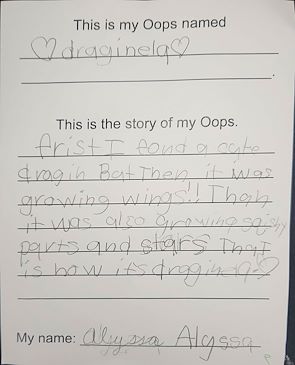 This is my Oops named
♡draginela♡
This is the story of my Oops.
frist I fond a cute
dragin But Then it was
growing wings!! Than
it was also growing sqishy
parts and stars That
is how it's dragin a♡
My name: Alyssa Alyssa